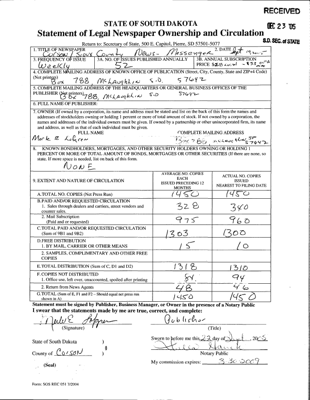 RECEIVED
DEC 23 '05
S.D. SEC. of STATE
STATE OF SOUTH DAKOTA
Statement of Legal Newspaper Ownership and Circulation
Return to: Secretary of State, 500 E. Capitol, Pierre, SD 57501-5077
1. TITLE OF NEWSPAPER
2. DATE
Corson/Sioux County News-Messenger
3. FREQUENCY OF ISSUE
3A. NO. OF ISSUES PUBLISHED ANNUALLY
3B. ANNUAL SUBSCRIPTION
Weekly
52
PRICE
4. COMPLETE MAILING ADDRESS OF KNOWN OFFICE OF PUBLICATION (Street, City, County, State and ZIP+4 Code)
(Not printers)
Box 788 McLaughlin S.D. 57642
5. COMPLETE MAILING ADDRESS OF THE HEADQUARTERS OR GENERAL BUSINESS OFFICES OF THE
PUBLISHER (Not printers)
Box 788, McLaughlin SD 57642
6. FULL NAME OF PUBLISHER
7. OWNER (If owned by a corporation, its name and address must be stated and also immediately thereunder the names and
FULL NAME
COMPLETE MAILING ADDRESS
Box 788 McLaughlin SD 57642
8. KNOWN BONDHOLDERS, MORTGAGES, AND OTHER SECURITY HOLDERS OWNING OR HOLDING 1
PERCENT OR MORE OF TOTAL AMOUNT OF BONDS, MORTGAGES OR OTHER SECURITIES (If there are none, so
state. If more space is needed, list on back of this form.
NONE
9. EXTENT AND NATURE OF CIRCULATION
AVERAGE NO. COPIES
EACH
ISSUED PRECEDING 12
MONTHS
ACTUAL NO. COPIES
ISSUED
NEAREST TO FILING DATE
A. TOTAL NO. COPIES (Net Press Run)
1450
1450
B. PAID AND/OR REQUESTED CIRCULATION
1. Sales through dealers and carriers, street vendors and
counter sales.
328
340
2. Mail Subscription
(Paid and or requested)
975
960
C. TOTAL PAID AND/OR REQUESTED CIRCULATION
(Sum of 9B1 and 9B2)
1303
1300
D. FREE DISTRIBUTION
1. BY MAIL, CARRIER OR OTHER MEANS
15
10
2. SAMPLES, COMPLIMENTARY AND OTHER FREE
COPIES
E. TOTAL DISTRIBUTION (Sum of C, D1 and D2)
1318
1310
F. COPIES NOT DISTRIBUTED
1. Office use, left over, unaccounted, spoiled after printing
84
94
2. Return from News Agents
48
46
G. TOTAL (Sum of E, F1 and F2 – Should equal net press run
shown in A)
1450
1450
Statement must be signed by Publisher, Business Manager, or Owner in the presence of a Notary Public
I swear that the statements made by me are true, correct, and complete:
Publisher
(Signature)
(Title)
State of South Dakota )
Sworn to before me this 23 day of Sept 2005
County of CORSON )
Notary Public
(Seal)
My commission expires:
Form: SOS REC 051 5/2004